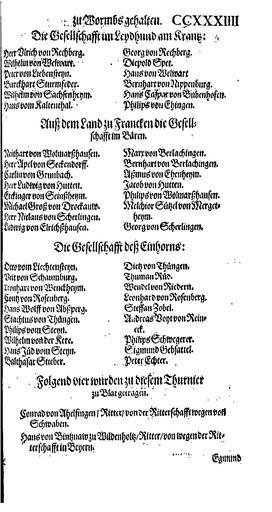 zu Wormbs gehalten. CCXXXIIII
Die Gesellschafft im Leydhund am Krantz:
Herr Vlrich von Rechberg. Georg von Rechberg.
Wilhelm von Welwart. Diepold Spet.
Peter von Liebensteyn. Hans von Welwart
Burckhart Sturmfeder. Bernhart von Nippenburg.
Wilhelm von Sachsenheym. Hans Caspar von Bubenhofen.
Hans von Kaltenthal. Philips von Ehingen.
Auß dem Land zu Francken die Gesell-
schafft im Bären.
Reinhart von Wolmarßhausen. Marx von Berlachingen.
Herr Apel von Seckendorff. Bernhart von Berlachingen.
Carlin von Grumbach. Aßmus von Ehenheym.
Herr Ludwig von Hutten. Jacob von Hutten.
Erckinger von Seinßheym. Philips von Wolmarßhausen.
Michael Groß von Trockauw. Melchior Sützel von Merget-
Herr Nilaus von Scherlingen. heym.
Ludwig von Elrichßhausen. Georg von Scherlingen.
Die Gesellschafft deß Einhorns:
Otto vom Liechtensteyn. Dietz von Thüngen.
Veit von Schaumburg. Thuman Rüd.
Leonhart von Wenckheym. Wendel von Riedern.
Contz von Rosenberg. Leonhard von Rosenberg.
Hans Wolff von Absperg. Steffan Zobel.
Stachius von Thüngen. Andreas Voyt von Rein-
Philips vom Steyn. eck.
Wilhelm von der Kere. Philips Schwegerer.
Hans Jüd vom Steyn. Sigmund Gebsattel.
Balthasar Stieber. Peter Echter.
Folgend vier wurden zu diesem Thurnier
zu Blat getragen.
Conrad von Ahelfingen / Ritter / von der Ritterschafft wegen von
Schwaben.
Hans von Bintznaw zu Wildenholtz / Ritter / von wegen der Rit-
terschafft in Beyern.
Egmund